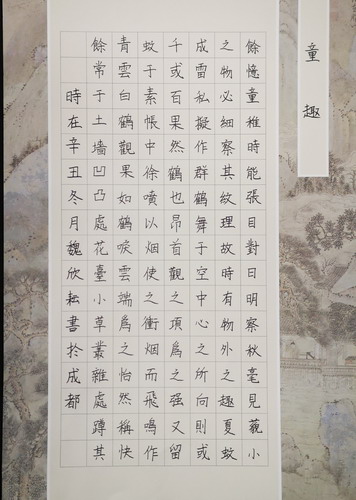 童趣
餘憶童稚時能張目對日明察秋毫見藐小
之物必細察其紋理故時有物外之趣夏蚊
成雷私擬作群鶴舞于空中心之所向則或
千或百果然鶴也昂首觀之項爲之强又留
蚊于素帳中徐噴以烟使之衝烟而飛鳴作
青雲白鶴觀果如鶴唳雲端爲之怡然稱快
餘常于土墻凹凸處花臺小草叢雜處蹲其
時在辛丑冬月魏欣耘書於成都